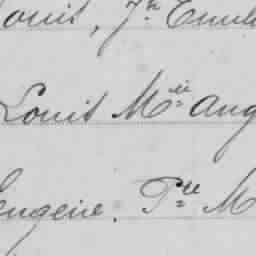 Louis, Jh Emil
Louis Mie Aug
Eugène. Pre M